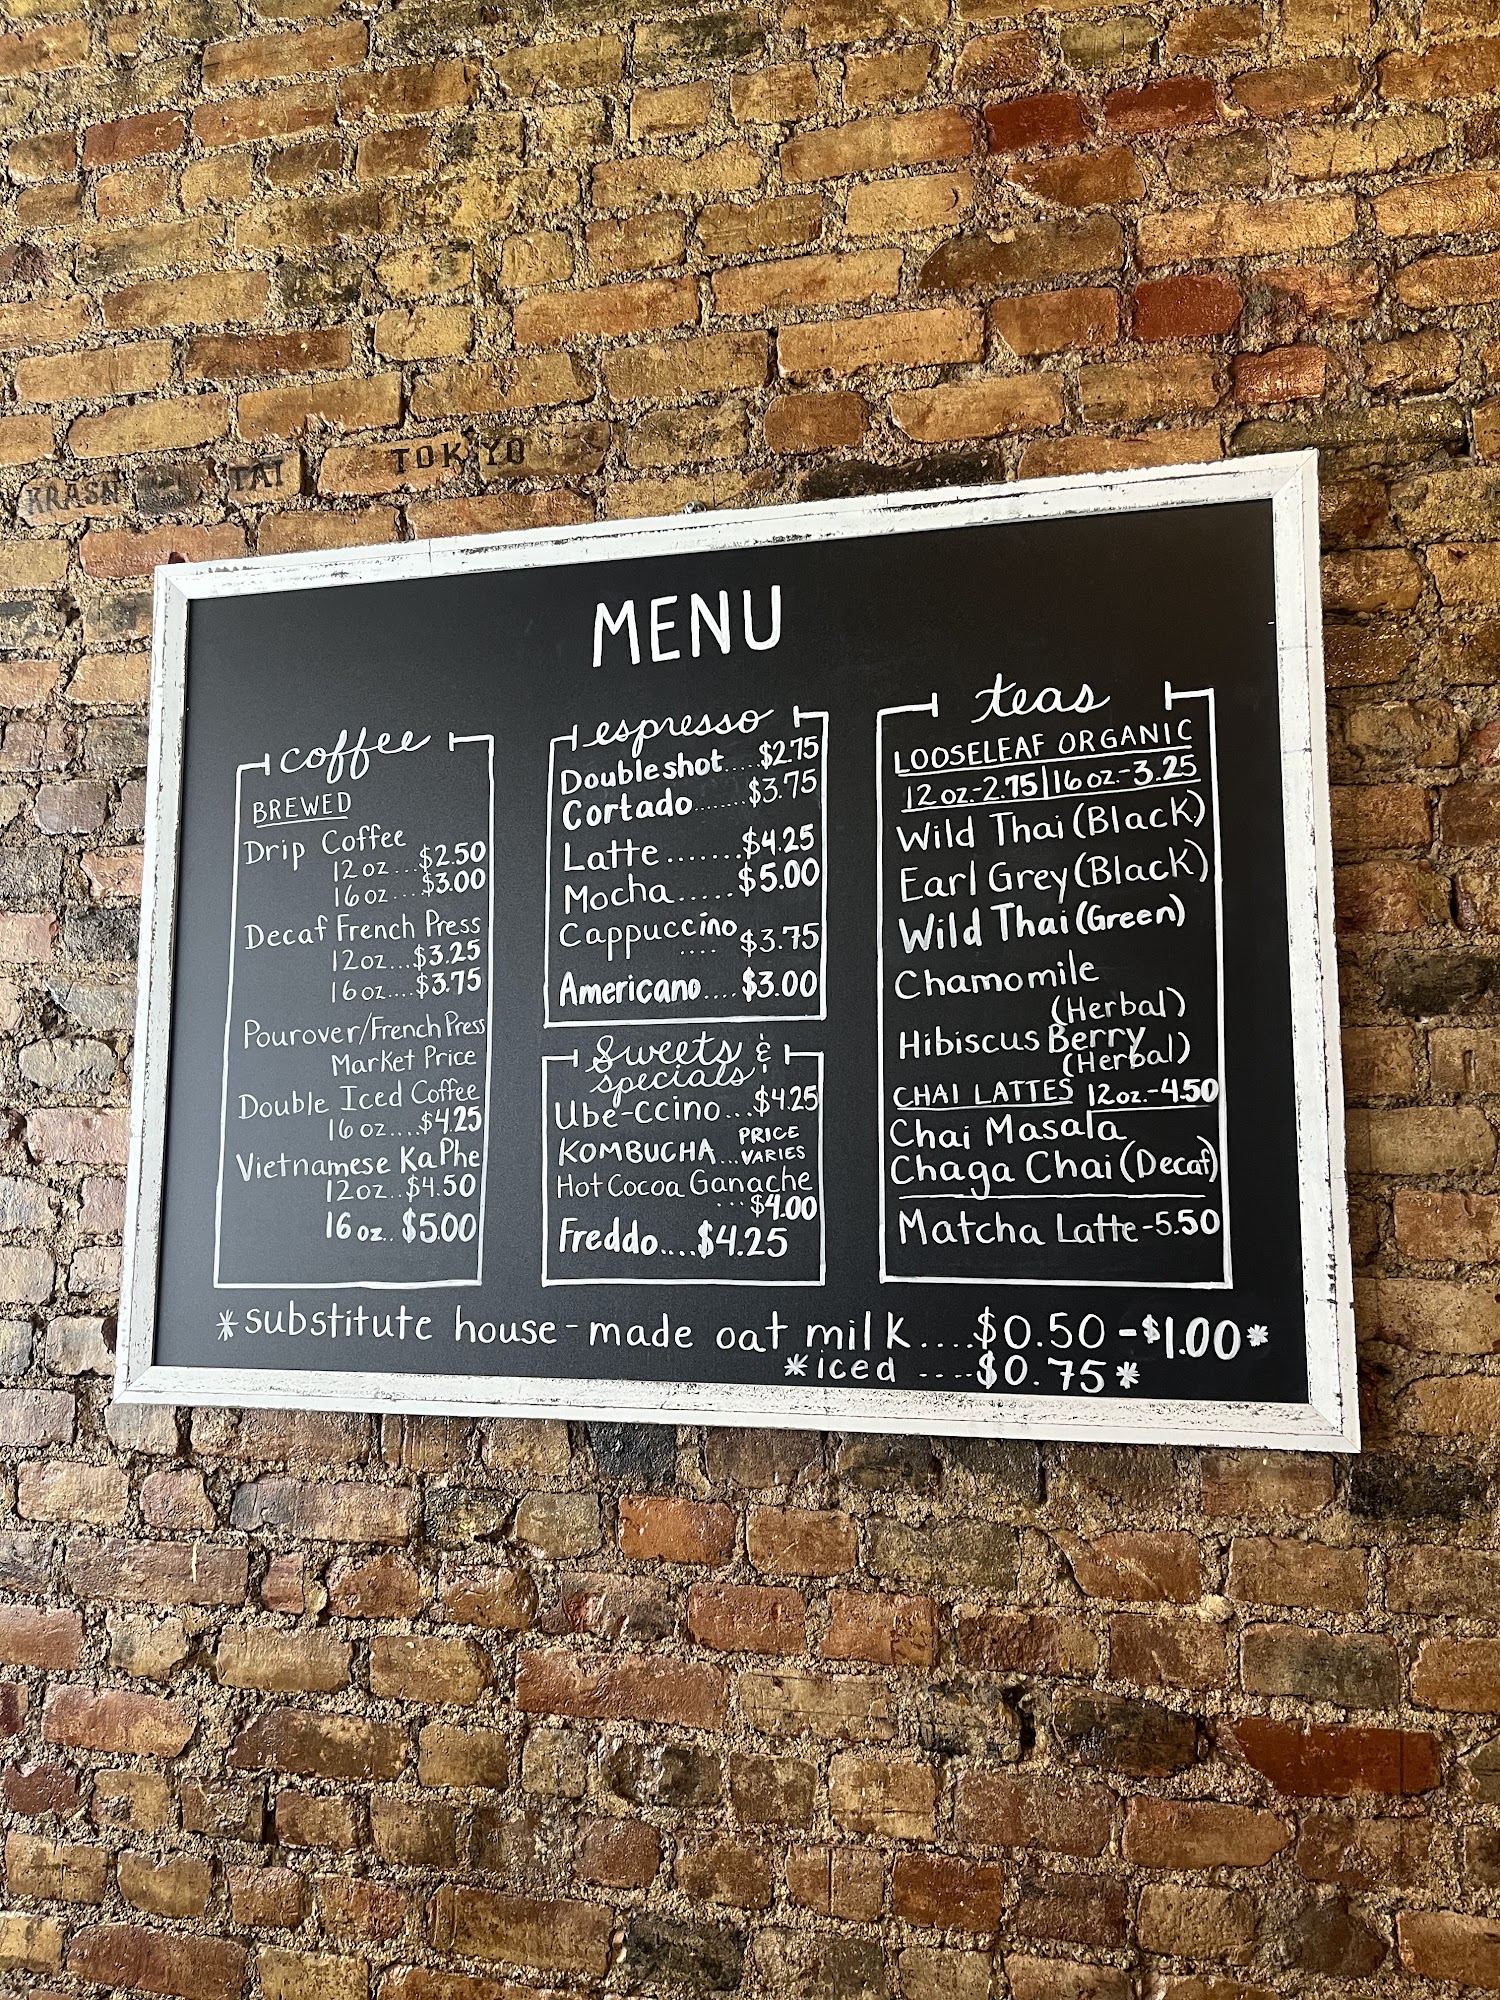 TOKYO
KRASN
TAI
MENU
coffee
BREWED
Drip Coffee
12oz...$2.50
16oz...$3.00
Decaf French Press
12oz...$3.25
16oz....$3.75
Pourover/French Press
Market Price
Double Iced Coffee
16oz....$4.25
Vietnamese Ka Phe
12oz..$4.50
16oz..$5.00
espresso
Doubleshot....$2.75
Cortado........$3.75
Latte.......$4.25
Mocha.....$5.00
Cappuccino
....$3.75
Americano....$3.00
Sweets &
specials
Ube-ccino...$4.25
KOMBUCHA...PRICE
VARIES
Hot Cocoa Ganache
...$4.00
Freddo....$4.25
teas
LOOSELEAF ORGANIC
12oz.-2.75|16oz.-3.25
Wild Thai (Black)
Earl Grey (Black)
Wild Thai (Green)
Chamomile
(Herbal)
Hibiscus Berry
(Herbal)
CHAI LATTES 12oz.-4.50
Chai Masala
Chaga Chai (Decaf)
Matcha Latte-5.50
*substitute house-made oat milk....$0.50-$1.00*
*iced ....$0.75*